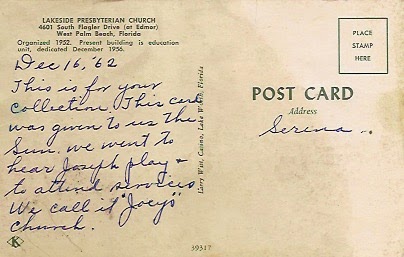 LAKESIDE PRESBYTERIAN CHURCH
4601 South Flagler Drive (at Edmor)
West Palm Beach, Florida
Organized 1952. Present building is education
unit, dedicated December 1956.
Dec 16, '62
This is for your
collection. This card
was given to us the
Sun. we went to
hear Joseph play &
to attend services
We call it "Joey's"
Church.
Larry Witt, Casino, Lake Worth, Florida
PLACE
STAMP
HERE
POST CARD
Address
Serena
K
39317